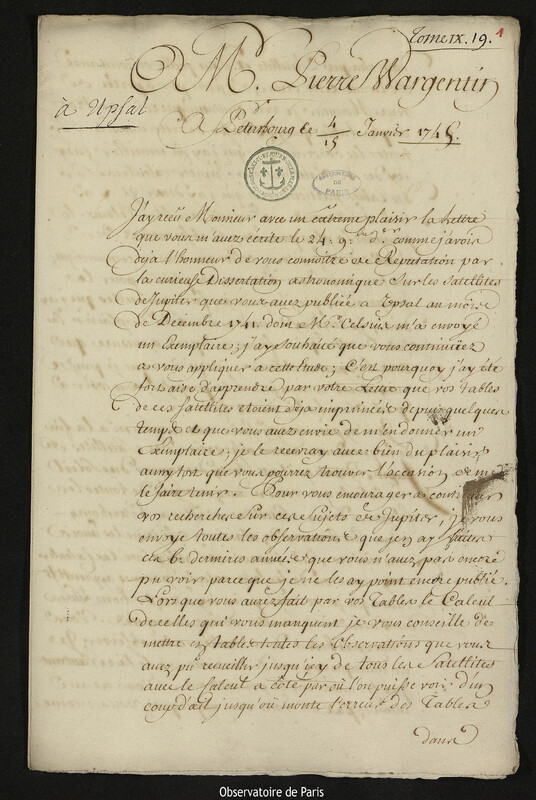 Tome IX. 19. 1
A M.r Pierre Wargentin
à Upsal
A Petersbourg le 4/15 Janvier 1745.
OBSERVATOIRE DE PARIS
J'ay reçu Monsieur avec un extreme plaisir la lettre
que vous m'avez écrite le 24. 9.bre d.er comme j'avois
deja l'honneur de vous connoître de Reputation par
la curieuse Dissertation astronomique sur les satellites
de Jupiter que vous avez publiée a Upsal au mois
de Decembre 1741. dont M.r Celsius m'a envoyé
un Exemplaire; j'ay souhaité que vous continuiez
a vous appliquer a cette Etude; C'est pourquoy j'ay été
fort aise d'apprendre par votre Lettre que vos Tables
de ces satellites etoient deja imprimées depuis quelque
temps et que vous avez envie de m'en donner un
Exemplaire; je le recevray avec bien du plaisir
aussytost que vous pourrez trouver l'occasion de me
le faire tenir. Pour vous encourager a continuer
vos recherches sur ces sujets de Jupiter, je vous
envoye toutes les observations que j'en ay faites
ces dernieres années que vous n'avez pas encore
pu voir parce que je ne les ay point encore publié.
Lors que vous aurez fait par vos Tables le Calcul
de celles qui vous manquent je vous conseille de
mettre en table toutes les Observations que vous
avez pu recueillir jusqu'icy de tous les Satellites
avec le Calcul a côté par où l'on puisse voir d'un
coup d'œil jusqu'où monte l'erreur des Tables
dans
Observatoire de Paris